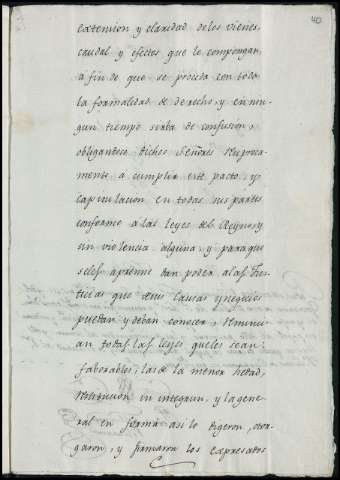 40
extension y claridad delos vienes
caudal y efectos que le compongan,
a fin de que se proceda con toda
la formalidad de derecho, y en nin
gun tiempo sirba de confusion,
obligandose dichos Señores reciproca
mente a cumplir este pacto, y
capitulacion en todas sus partes
conforme a las leyes del Reyno, y
sin violencia alguna, y paraque
seles apremie dan poder alas Jus
ticias que desus causas y negocios
puedan y deban conocer, renunci
an todas las leyes queles sean
faborables, las de la menor hedad,
restitucion in integrun, y la gene
ral en forma asi lo digeron, otor
garon, y firmaron los expresados